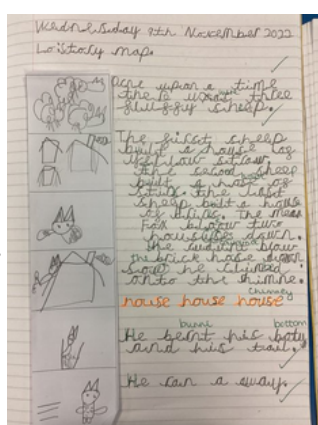 Wednesday 9th November 2022
Lo story map.
once upon a time
there was three
fluffy sheep.
The first sheep
built a house of
yellow straw.
the second sheep
built a
sticks the last
sheep built a house
of The mean
fox blow two
houses down.
He blow
the brick house down
so he climed
onto the chimne.
chimney
house house house
burnt bottom
He bernt his
and his tail.
He ran a away.